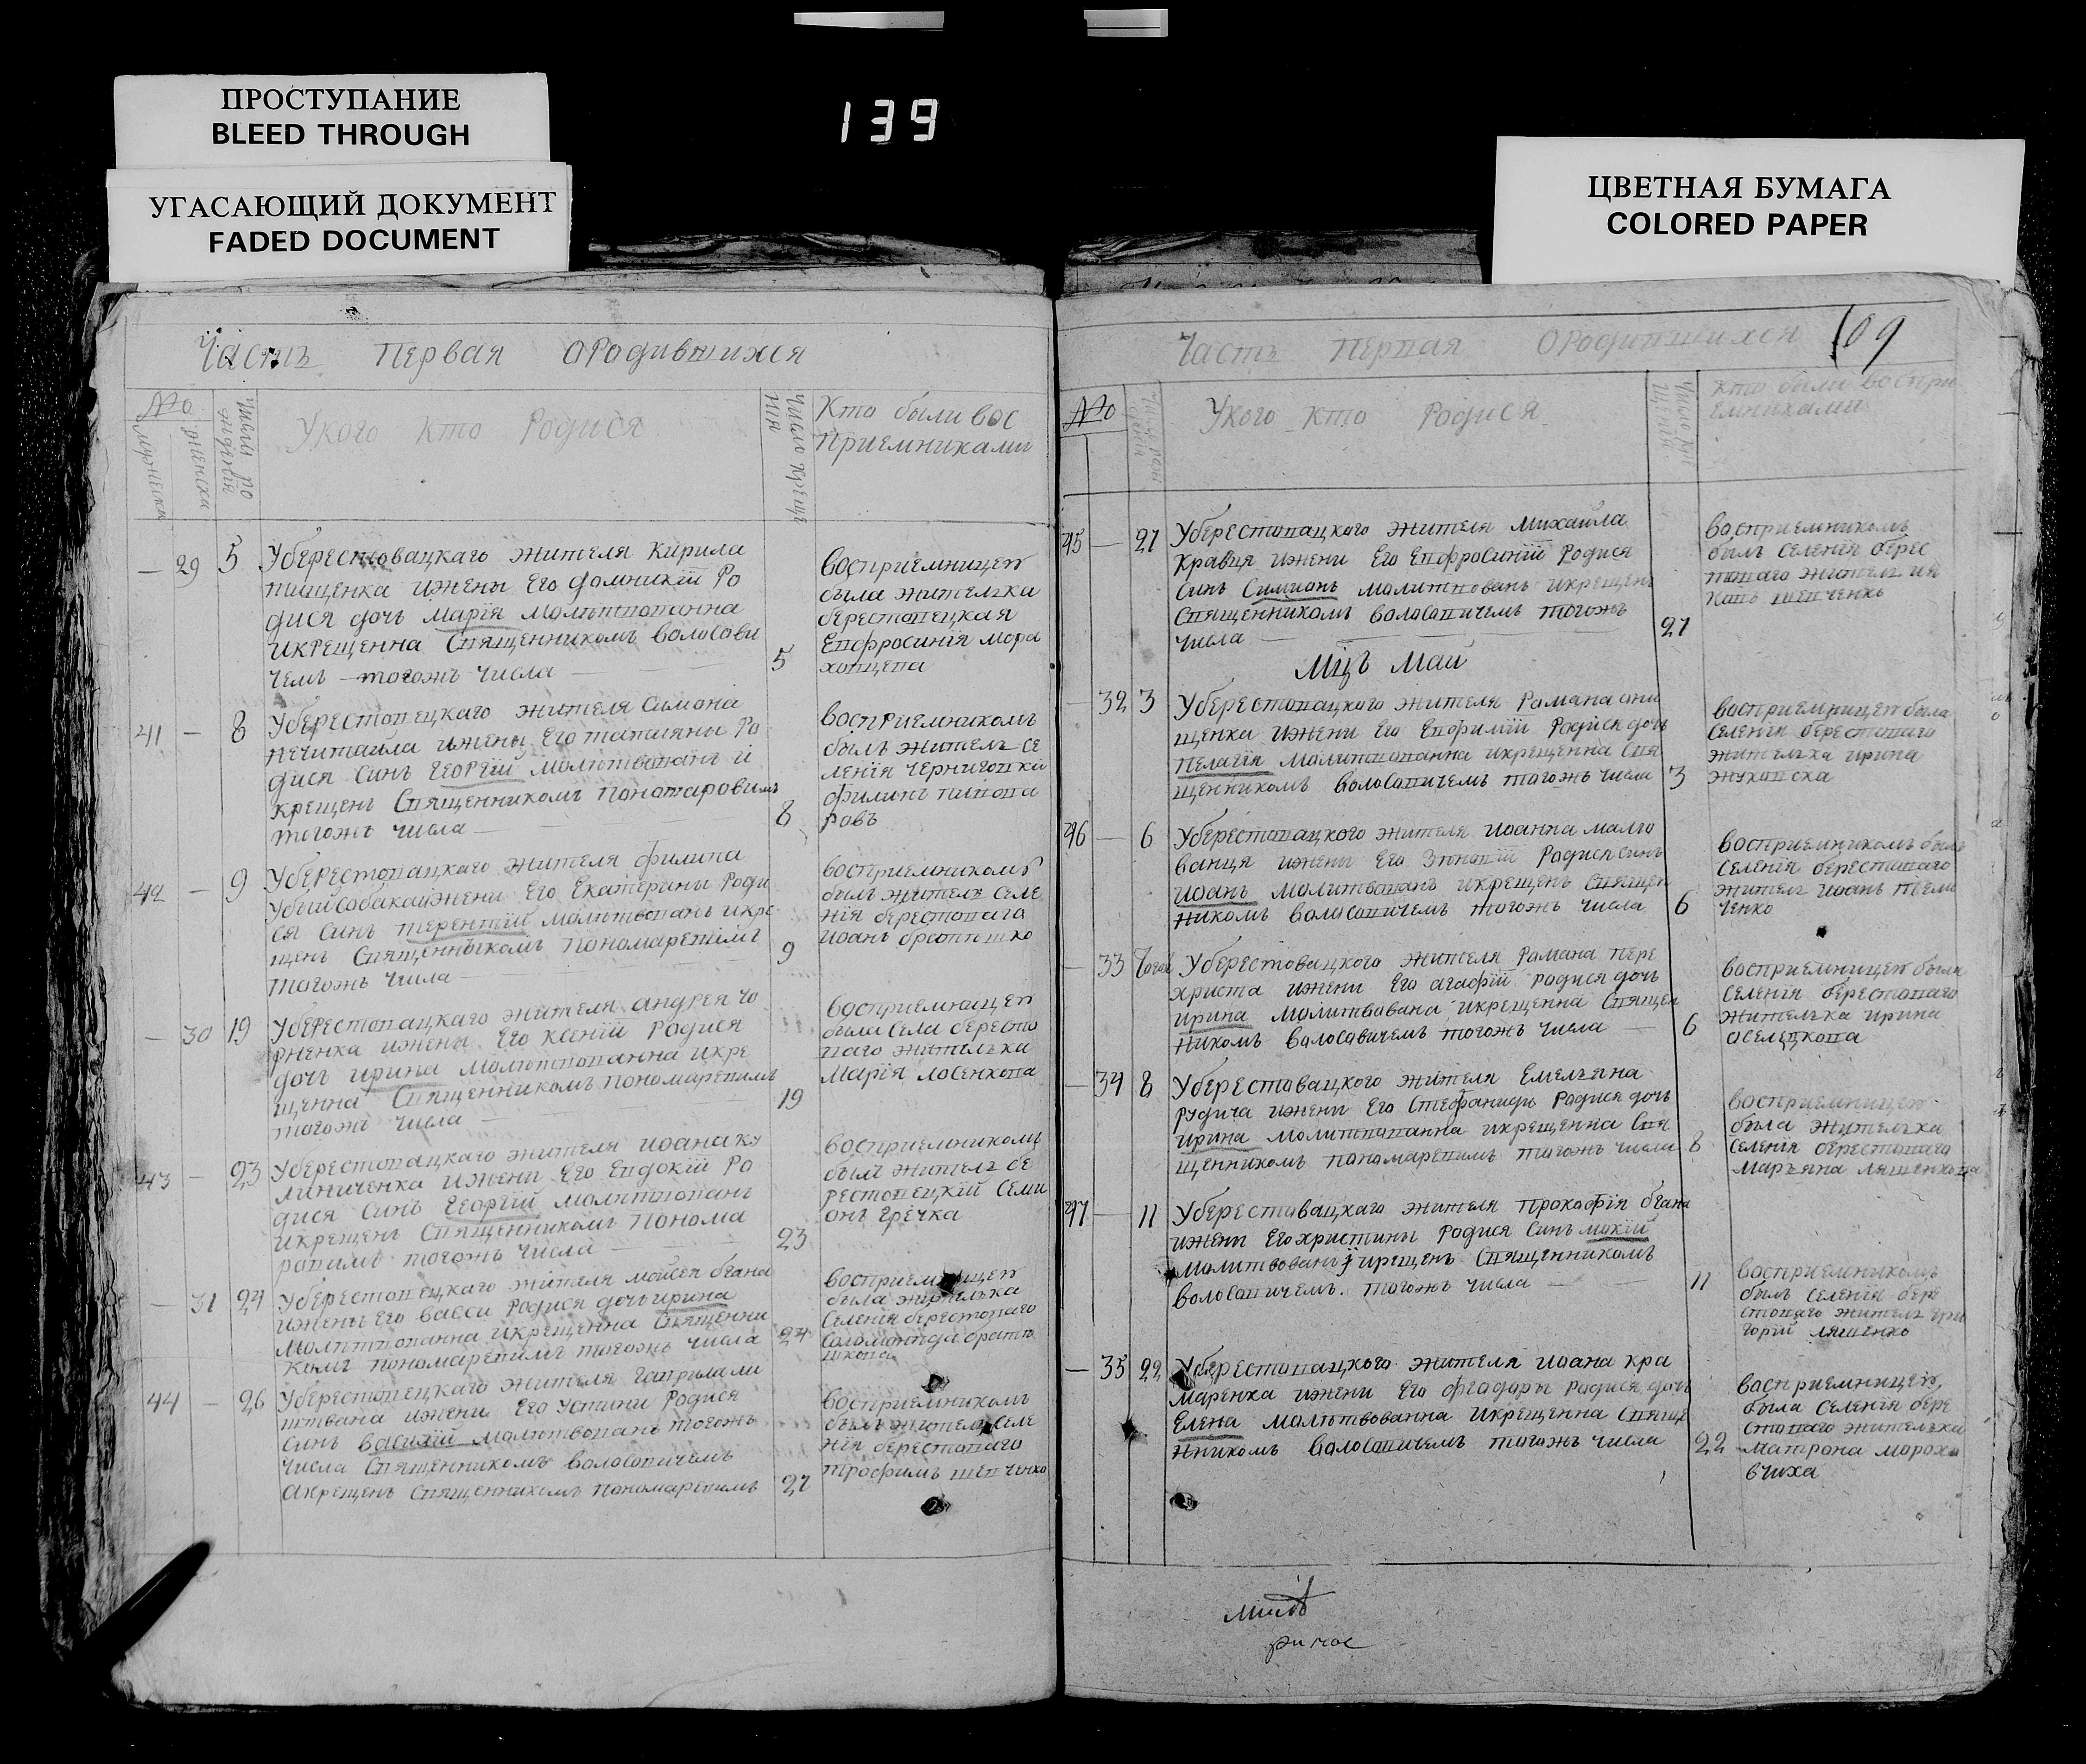 ПРОСТУПАНИЕ
BLEED THROUGH
УГАСАЮЩИЙ ДОКУМЕНТ
FADED DOCUMENT
139
ЦВЕТНАЯ БУМАГА
COLORED PAPER
Часть Первая ОРодившихся
№
Укого кто Родися
Кто были вос
приемниками
29 5 Уберестовацкаго жителя Кирила
ижены Его домникїи Ро
дися дочь Марїя молитвованна
икрещенна Священникомъ волосови
чемъ тогожъ числа
5
восприемницею
была жителька
берестовецкая
Епфросинїя мора
ховцева
41 8 Уберестовецкаго жителя Симона
Нечитаила ижены Его татияны Ро
дися Синъ Георгїй молитвованъ и
крещенъ Священникомъ пономаровимъ
тогожъ числа
8
восприемникомъ
былъ житель се
ленїя Черниговки
филипъ пивова
ровъ
42 9 Уберестовацкаго жителя филипа
Убийсобакаижени Его Екатерины Роди
ся Синъ терентїй молитвованъ икре
щенъ Священникомъ пономаревимъ
тогожъ числа
9
восприемникомъ
былъ житель селе
нїя берестоваго
иоанъ
30 19 Уберестовацкаго жителя андрея чо
рненка ижены Его Ксенїи Родися
дочъ ирина молитвованна икре
щенна Священникомъ пономаревимъ
тогожъ числа
19
восприемницею
была села бересто
ваго жителька
Марїя лосенкова
43 23 Уберестовацкаго жителя иоана ку
линиченка ижени Его Евдокїи Ро
дися Синъ Георгїй молитвованъ
икрещенъ Священникомъ понома
ровимъ тогожъ числа
23
восприемникомъ
былъ житель бе
рестовецкїй Семи
онъ Гречка
31 24 Уберестовецкаго жителя мойсея бгана
ижены Его васси Родися дочъ ирина
молитвованна икрещенна Священни
комъ пономаревимъ тогожъ числа
24
восприемницею
была жителька
Селенїя берестоваго
Соломонида
44 26 Уберестовецкаго жителя гаврила ли
твина ижени Его Устини Родися
Синъ василїй молитвованъ тогожъ
числа Священникомъ волосовичемъ
акрещенъ Священникомъ пономаревимъ
27
восприемникомъ
былъ житель селе
нїя берестоваго
трофимъ шевченко
Часть Первая ОРодившихся 109
№
Укого кто Родися
кто были воспри
емниками
45 27 Уберестовацкого жителя михаила
кравця ижени Его Епфросинїи Родися
Синъ Симионъ молитвованъ икрещенъ
Священникомъ волосовичемъ тогожъ
числа
27
восприемникомъ
былъ селенїя берес
товаго житель ия
ковъ шевченко
Мцъ Май
32 3 Уберестовацкого жителя Романа они
щенка ижени Его Евфимїи Родися дочъ
Пелагїя молитвованна икрещенна Свя
щенникомъ волосовичемъ тогожъ числа
3
восприемницею была
селенїя берестоваго
жителька ирина
жуковска
46 6 Уберестовацкого жителя иоанна малю
ванця ижени Его Зиновїи Родися синъ
иоанъ молитвованъ икрещенъ Священ
никомъ волосовичемъ тогожъ числа
6
восприемникомъ былъ
селенїя берестоваго
житель иоанъ
ченко
33 Уберестовацкого жителя Романа пере
христа ижени Его агафїи родися дочъ
ирина молитвована икрещенна Священ
никомъ волосовичемъ тогожъ числа
6
восприемницею была
селенїя берестоваго
жителька ирина
оселецкова
34 8 Уберестовацкого жителя Емельяна
рудича ижени Его Стефаниды Родися дочъ
ирина молитвованна икрещенна Свя
щенникомъ пономаревимъ тогожъ числа
8
восприемницею
была жителька
селенїя берестоваго
Маръяна ляшенкова
47 11 Уберестовацкаго жителя прокофїя бгана
ижени Его христины Родися Синъ мокїй
молитвованъ икрещенъ Священникомъ
волосовичемъ тогожъ числа
11
восприемникомъ
былъ селенїя бере
стоваго житель гри
горїй ляшенко
35 22 Уберестовацкого жителя иоана кра
маренка ижени Его феодоры Родися дочъ
Елена молитвованна икрещенна Свяще
нникомъ волосовичемъ тогожъ числа
22
восприемницею
была селенїя бере
стоваго жителька
матрона морохо
вчиха